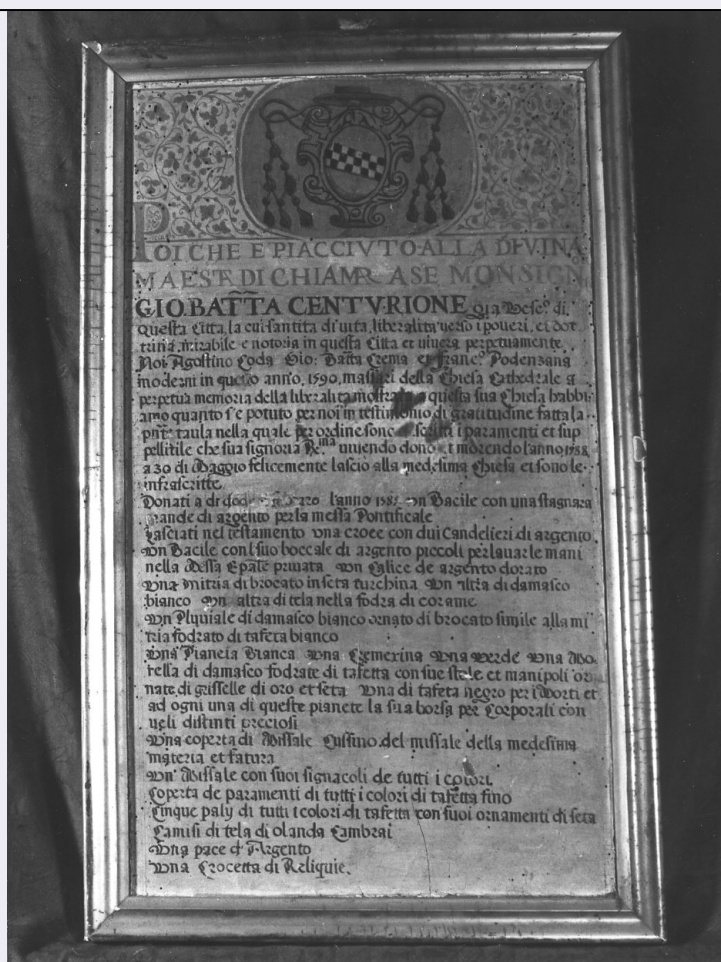 POI CHE E PIACCIVTO ALLA DIVINA
MAESTÀ DI CHIAMAR A SE MONSIGN
GIO. BATTA CENTVRIONE Gia Vesc.o di
questa Citta, la cui santita di uita, liberalita uerso i poueri, et dot
trina mirabile e notoria in questa Citta et uiuera perpetuamente.
Noi Agostino Coda Gio: Batta Crema et Franc.o Podenzana
moderni in questo anno. 1590. massari della Chiesa Cathedrale a
perpetua memoria della liberalita mostrata a questa sua Chiesa habbi
amo quanto s'e potuto per noi in testimonio di gratitudine fatta la
pnte taula nella quale per ordine sono scritti i paramenti et sup
pellitile che sua signoria Re.ma uiuendo dono et morendo l'anno 1588
a 30 di Maggio felicemente lascio alla medesima Chiesa et sono le
infrascritte
Donati a di l'anno Vn Bacile con una stagnara
grande di argento per la messa Pontificale
Lasciati nel testamento vna croce con dui Candelieri di argento.
Vn Bacile con l suo boccale di argento piccoli per lauar le mani
nella Messa Epale priuata Vn Calice de argento dorato
Vna mitria di brocato in seta turchina Vn altra di damasco
bianco Vn altra di tela nella fodra di corame
Vn Piuiale di damasco bianco ornato di brocato simile alla mi
tria fodrato di tafeta bianco
Vna Pianeta Bianca Vna Cremerina Vna verde Vna Mo
rella di damasco fodrate di tafetta con sue stole et manipoli or
nate di griselle di oro et seta Vna di tafeta negro per i Morti et
ad ogni una di queste pianete la sua borsa per Corporali con
ueli distinti preciosi
Vna coperta di Missale Cussino del missale della medesima
materia et fatura
Vn Missale con suoi signacoli de tutti i colori
Coperta de paramenti di tutti i colori di tafetta fino
Cinque paly di tutti i colori di tafetta con suoi ornamenti di seta
Camisi di tela di olanda Cambrai
Vna pace d'Argento
Vna Crocetta di Reliquie.